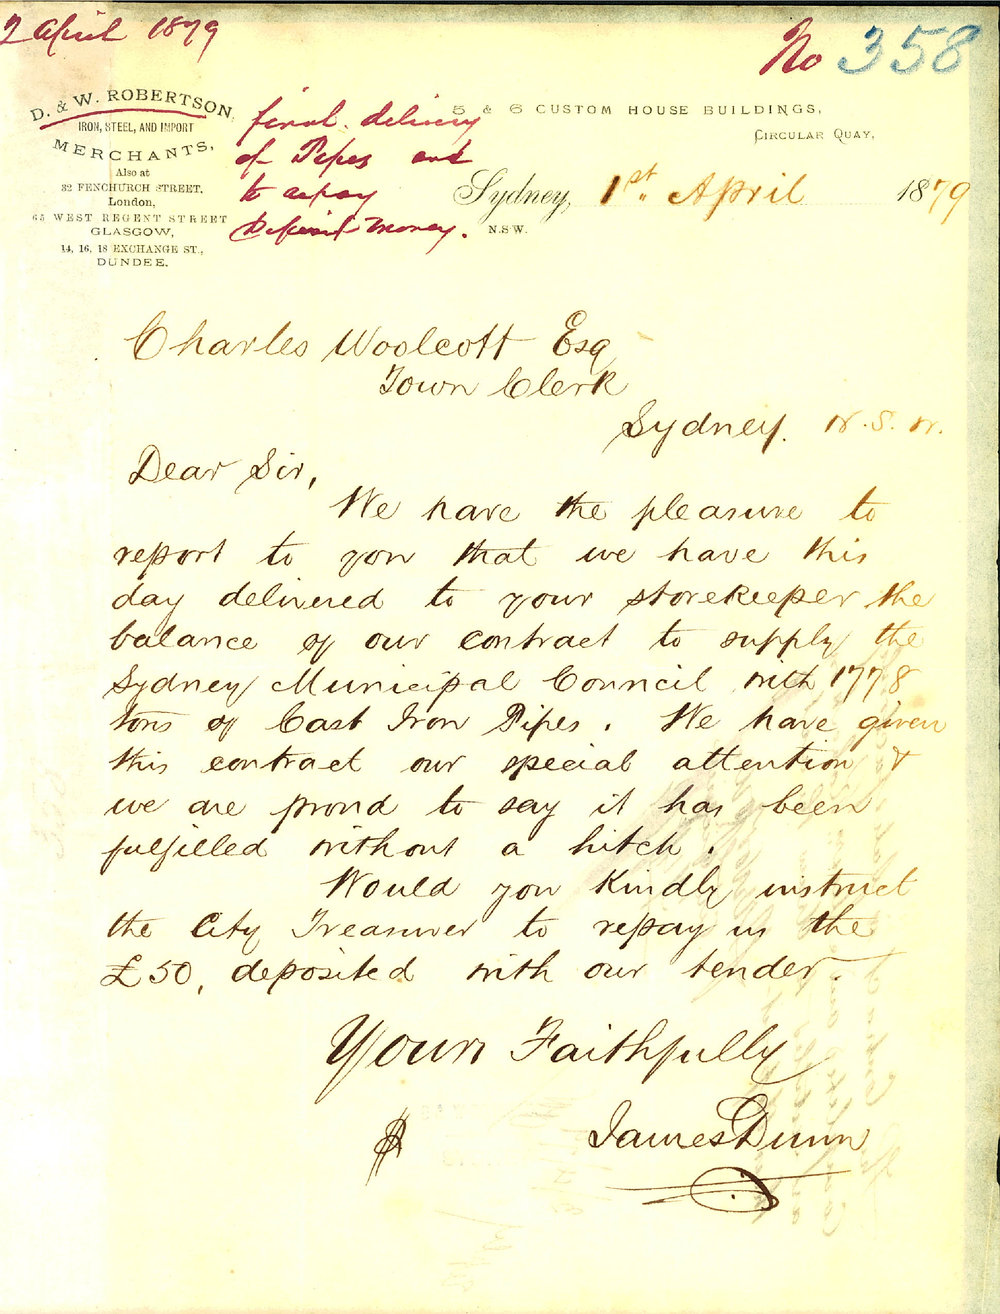 2 April 1879
No 358
D. & W. ROBERTSON,
IRON, STEEL, AND IMPORT
MERCHANTS,
Also at
32 FENCHURCH STREET,
London,
65 WEST REGENT STREET
GLASGOW,
14, 16, 18 EXCHANGE ST.,
DUNDEE.
final delivery
of Pipes and
to repay
Deposit money.
5 & 6 CUSTOM HOUSE BUILDINGS,
CIRCULAR QUAY,
Sydney, 1st April 1879
N.S.W.
Charles Woolcott Esq
Town Clerk
Sydney. N.S.W.
Dear Sir,
We have the pleasure to
report to you that we have this
day delivered to your storekeeper the
balance of our contract to supply the
Sydney Municipal Council with 1778
tons of Cast Iron Pipes. We have given
this contract our special attention &
we are proud to say it has been
fulfilled without a hitch.
Would you kindly instruct
the City Treasurer to repay us the
£50, deposited with our tender.
Yours Faithfully
James Dunn